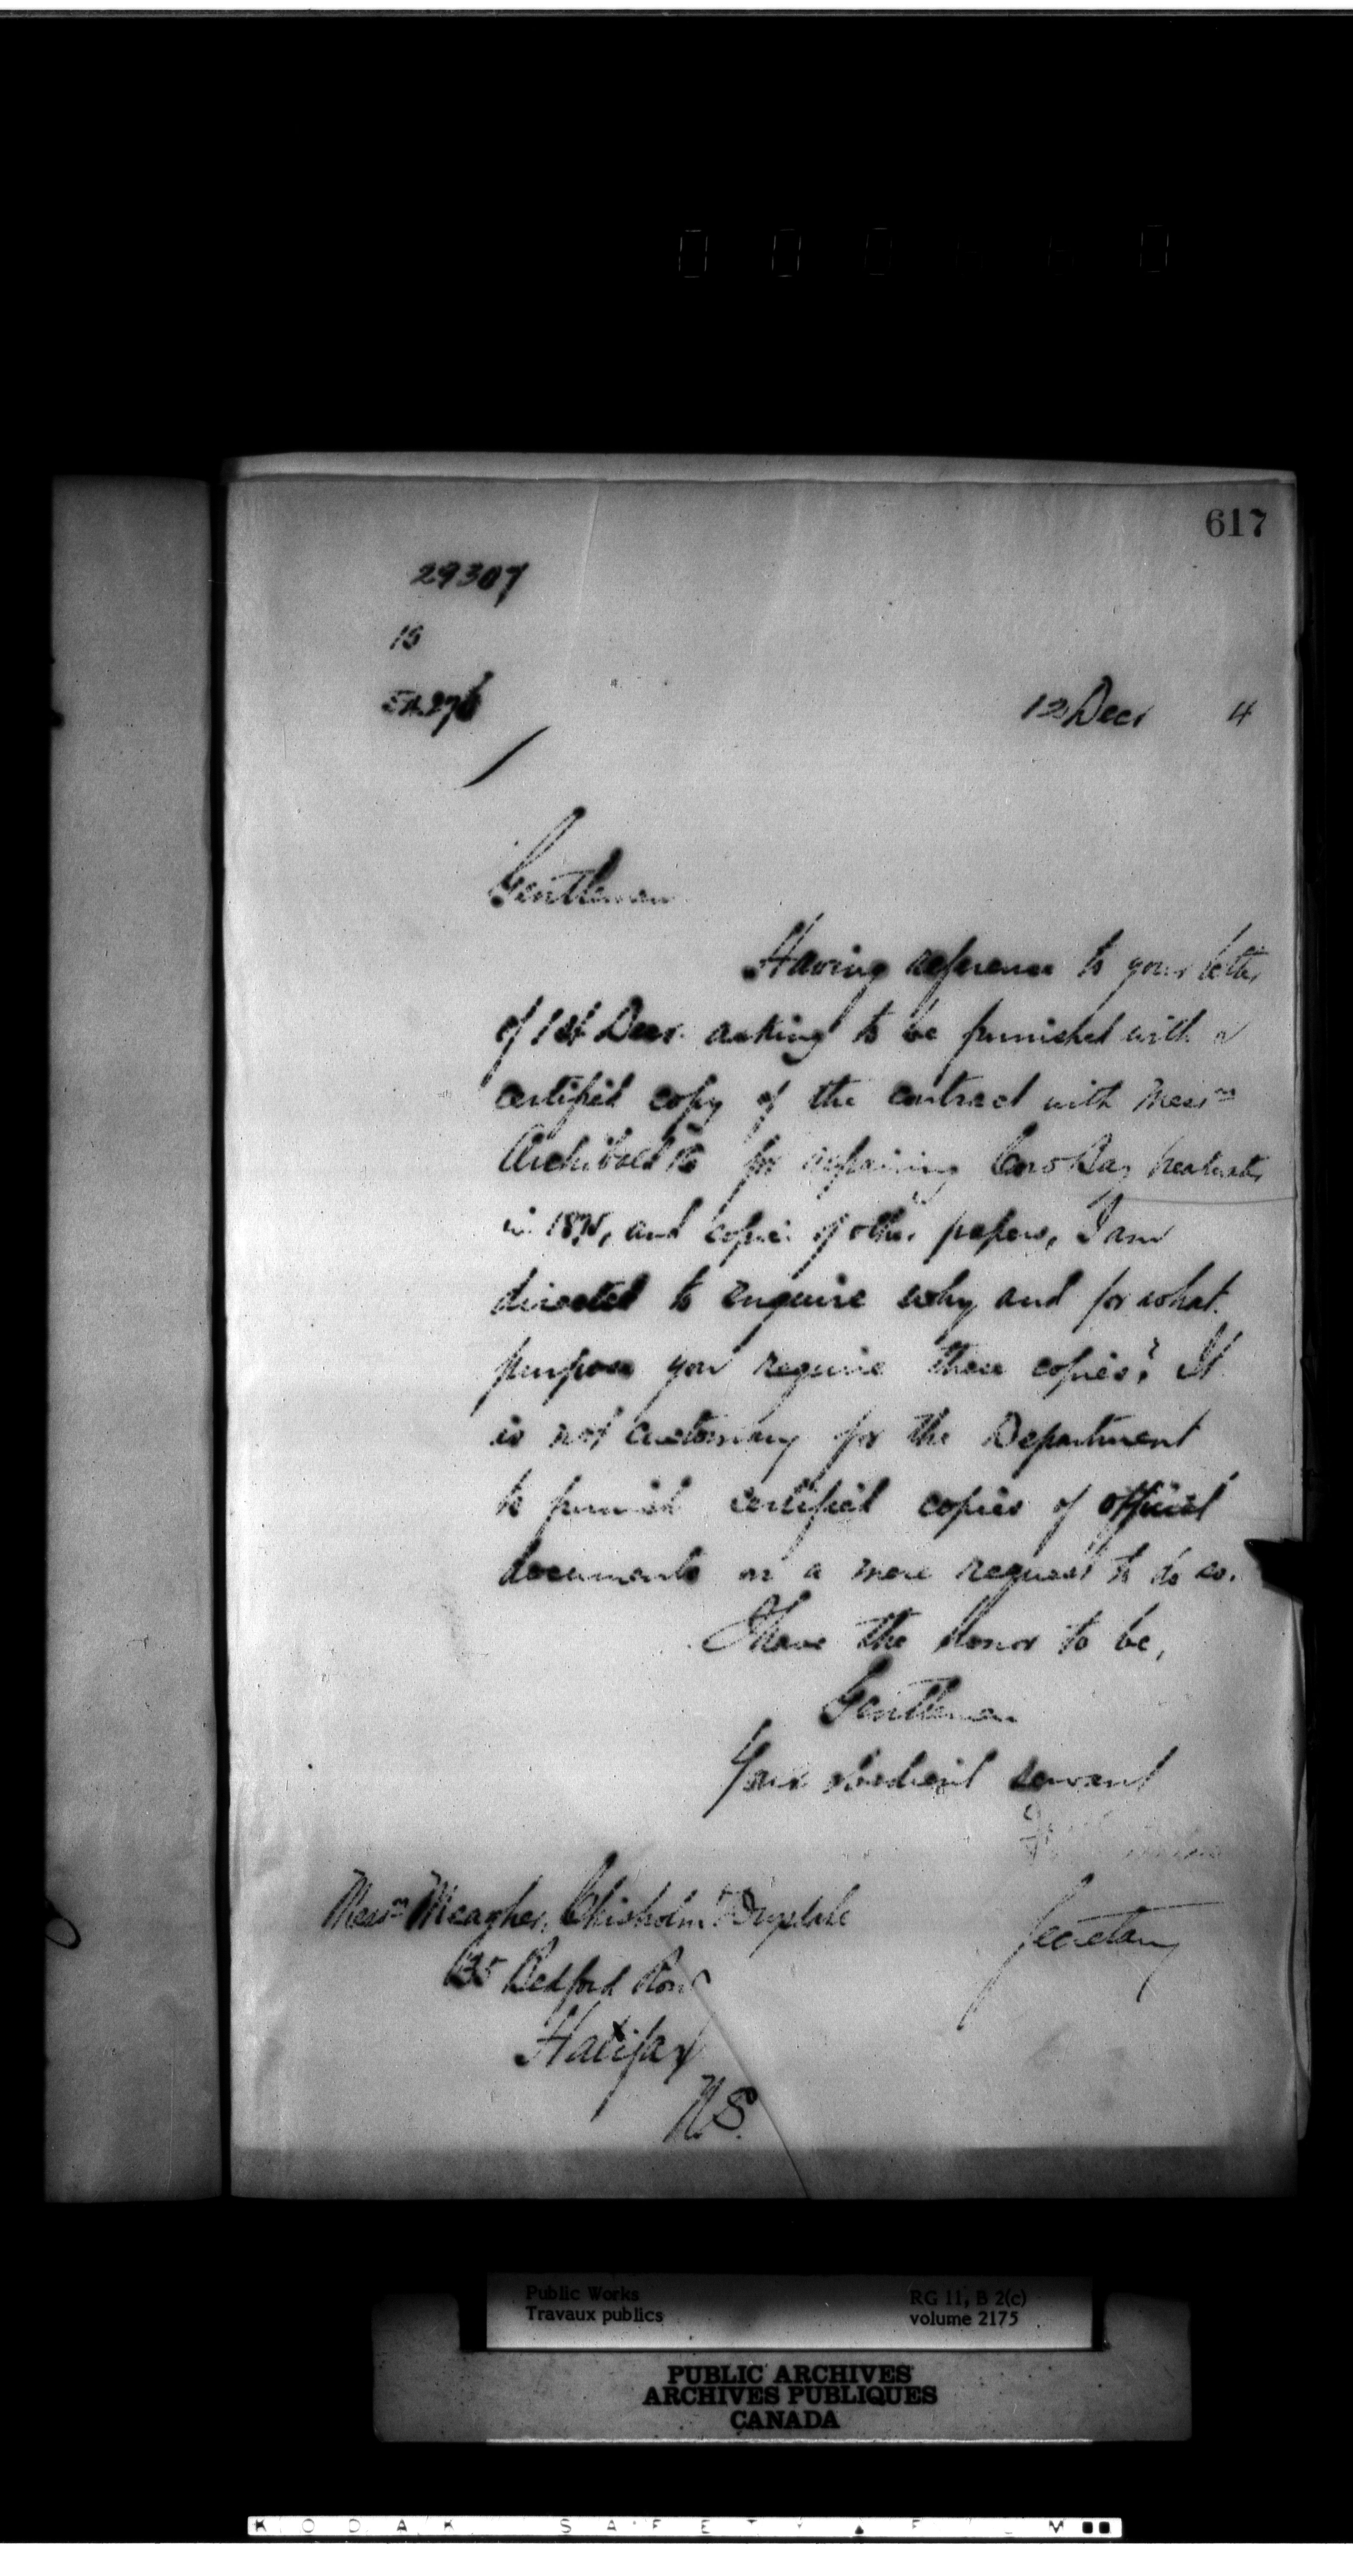 617
29307
15
12 Decr 4
Gentlemen
Having reference to your letter
of 1st Decr. asking to be furnished with a
certified copy of the contract with Messrs
Archibald & Co for repairing Cow Bay breakwater
in 1875, and copies of other papers, I am
directed to enquire why and for what
purpose you require these copies? It
is not customary for the Department
to furnish certified copies of official
documents on a mere request to do so.
I have the honor to be,
Gentlemen
Your obedient servant
Secretary
Messrs Meagher, Chisholm & Drysdale
35 Bedford Row
Halifax
N.S.
Public Works
Travaux publics
RG 11, B 2(c)
volume 2175
PUBLIC ARCHIVES
ARCHIVES PUBLIQUES
CANADA
KODAK SAFETY FILM